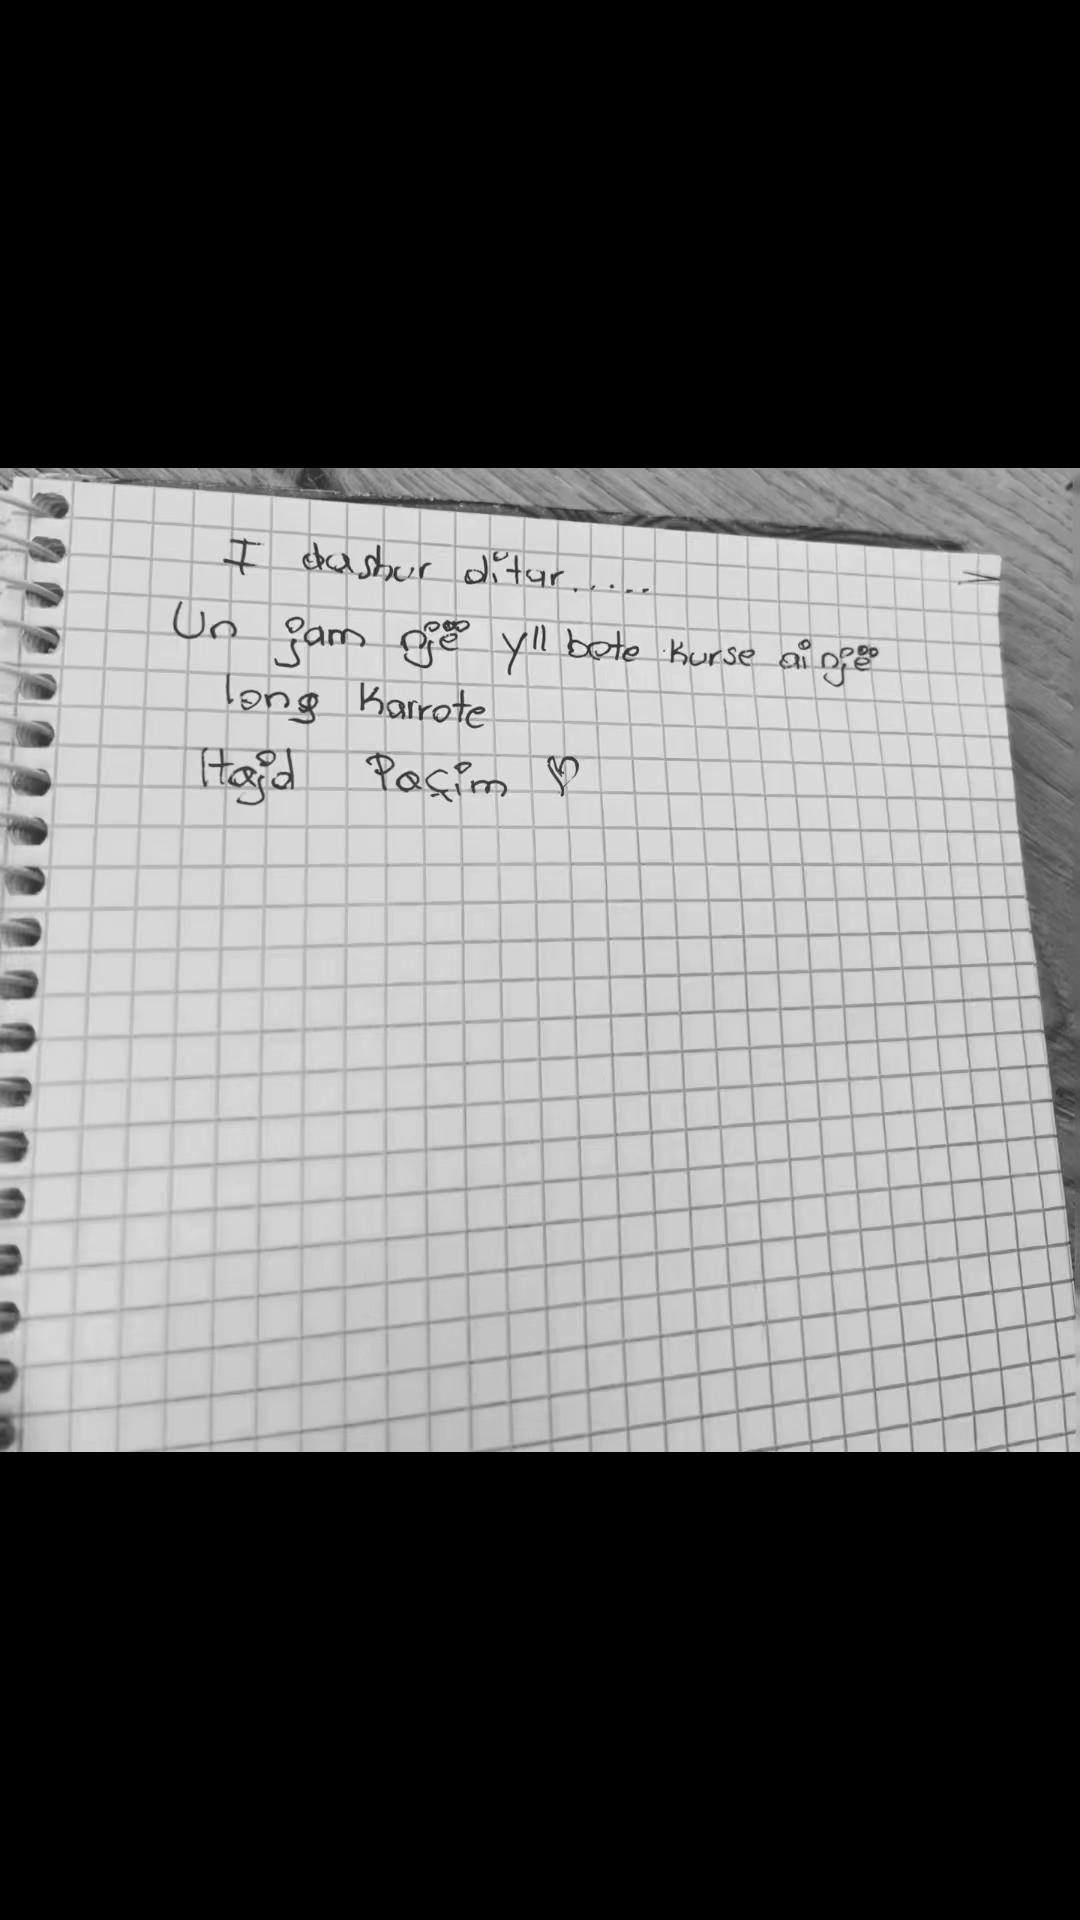 I dashur ditar.....
Un jam një yll bote kurse ai një
long Karrote
Hajd Paçim ♡